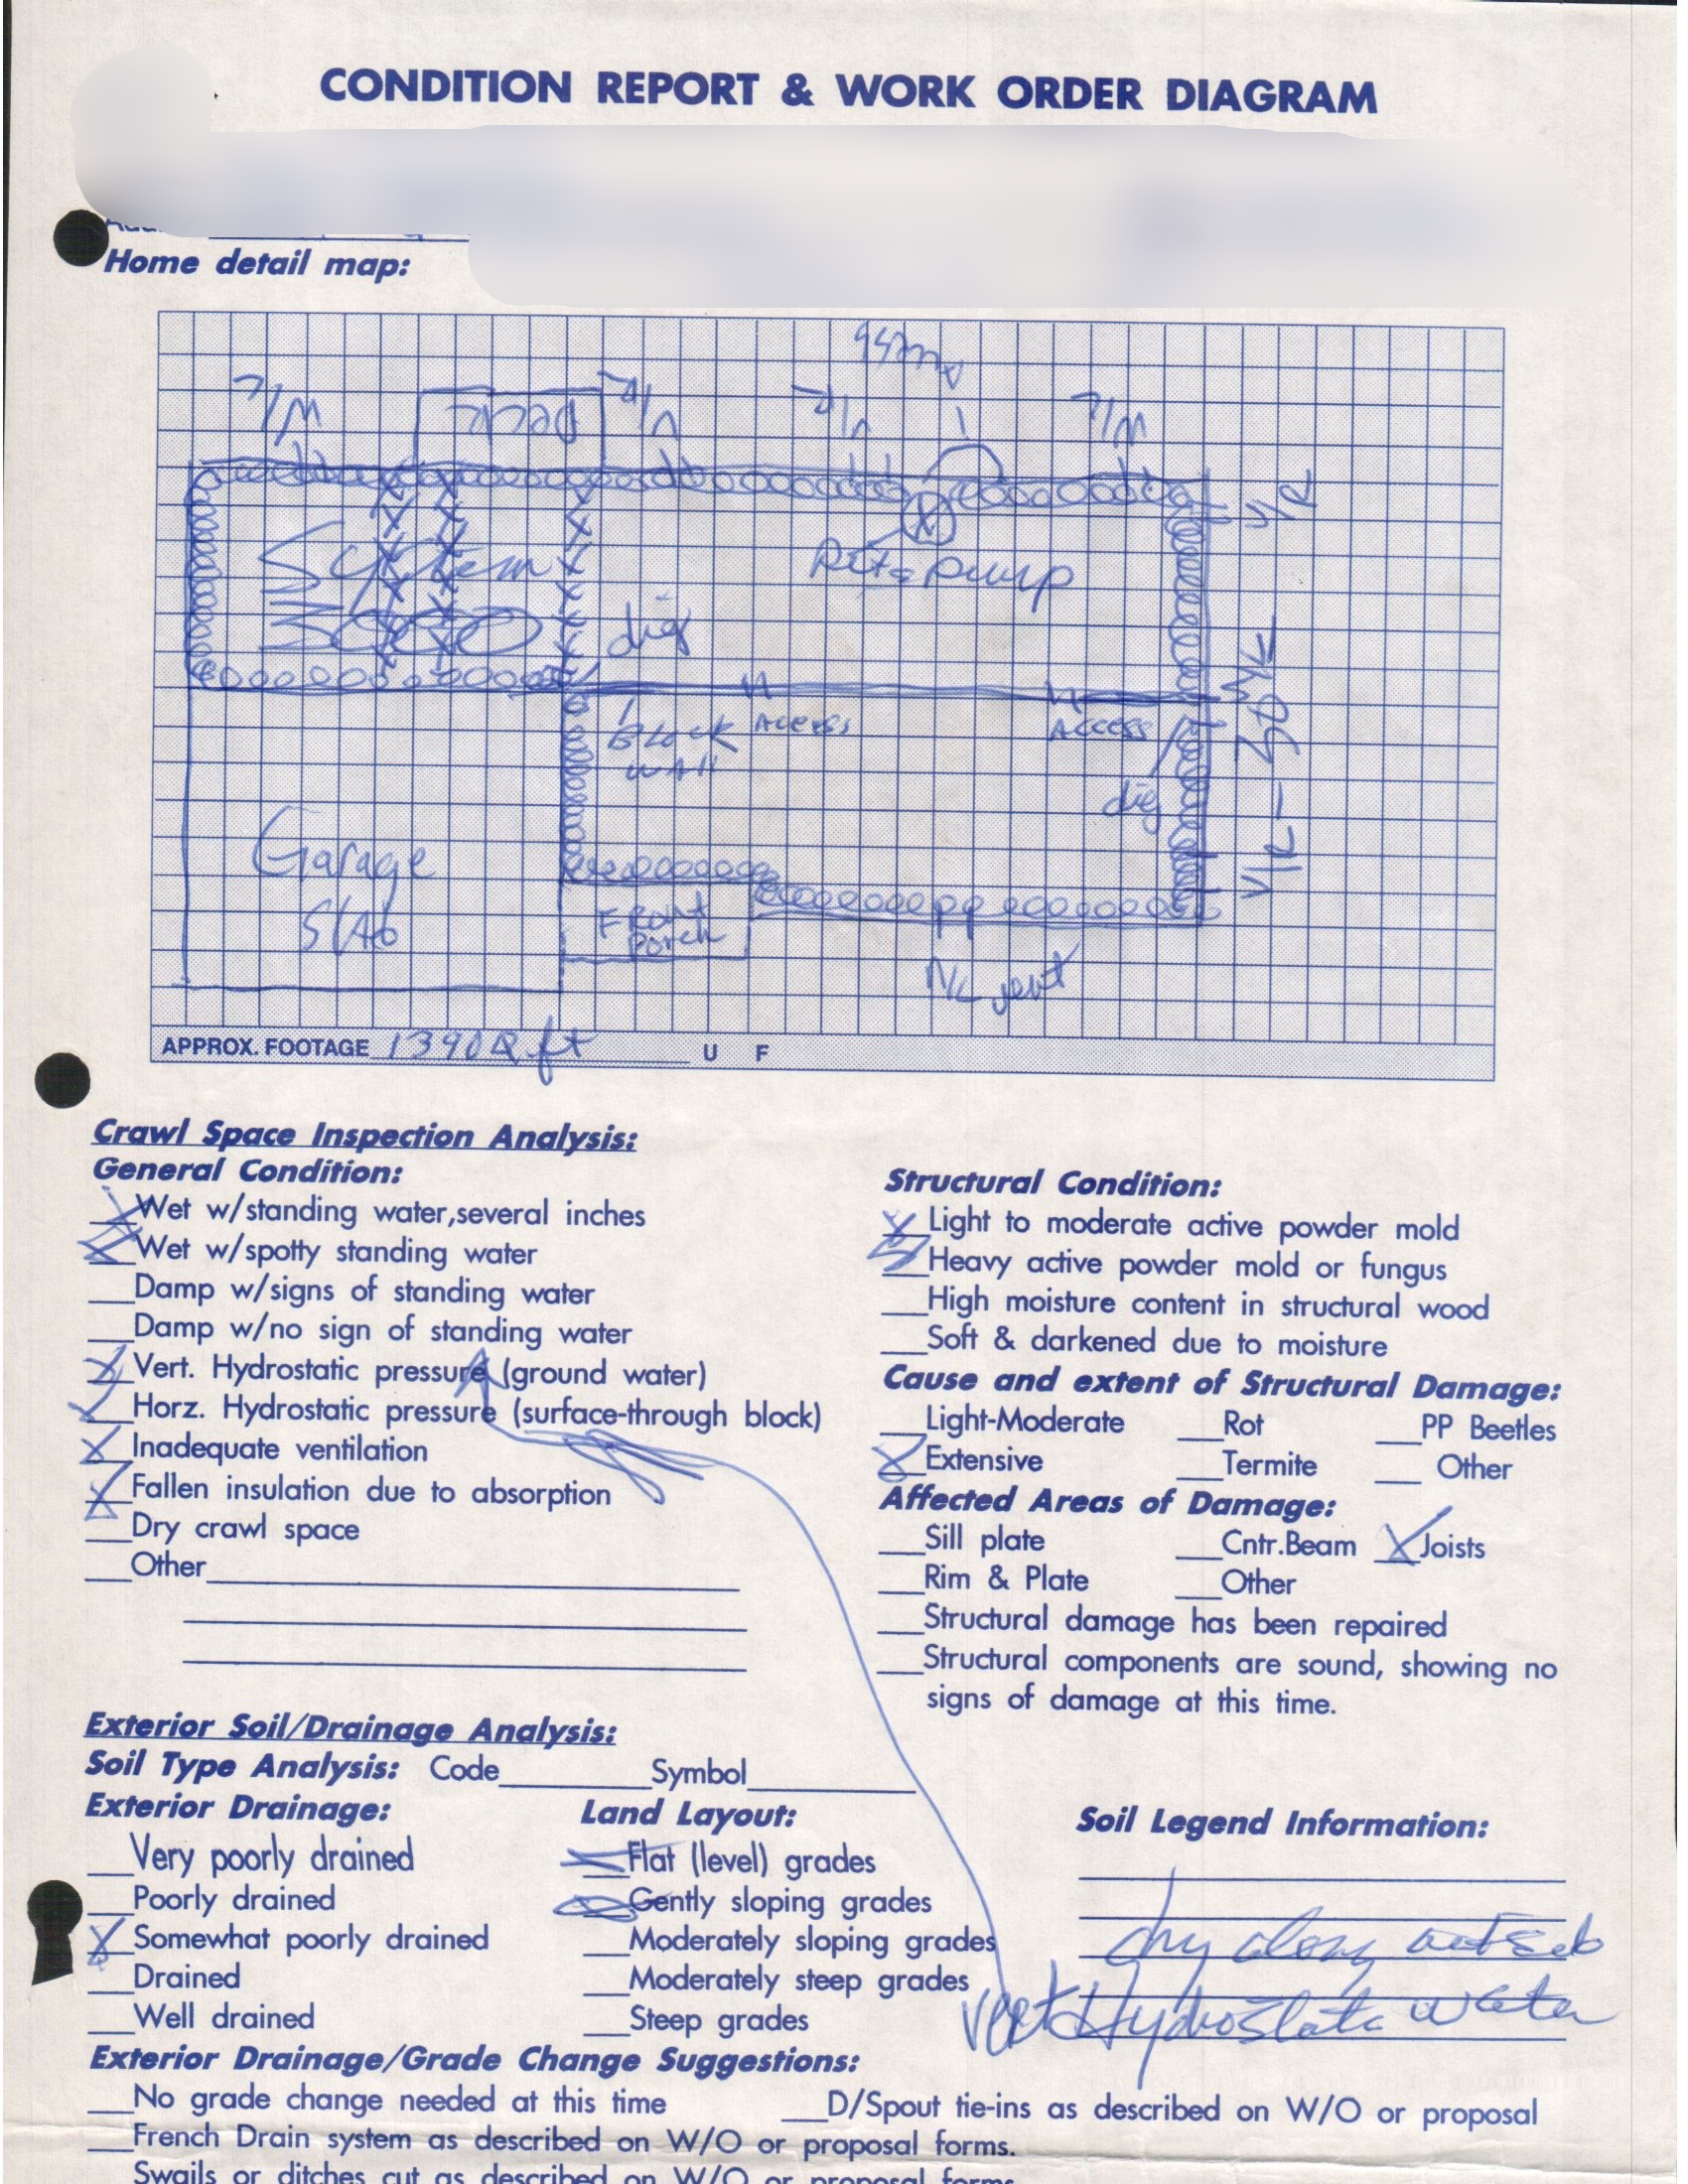 CONDITION REPORT & WORK ORDER DIAGRAM
Home detail map:
Deck
System
Pit & Pump
dig
Block
Wall
Access
Access
dig
Garage
Slab
Front
Porch
vent
APPROX. FOOTAGE U F
Crawl Space Inspection Analysis:
General Condition:
Wet w/standing water,several inches
Wet w/spotty standing water
Damp w/signs of standing water
Damp w/no sign of standing water
Vert. Hydrostatic pressure (ground water)
Horz. Hydrostatic pressure (surface-through block)
Inadequate ventilation
Fallen insulation due to absorption
Dry crawl space
Other
Structural Condition:
Light to moderate active powder mold
Heavy active powder mold or fungus
High moisture content in structural wood
Soft & darkened due to moisture
Cause and extent of Structural Damage:
Light-Moderate Rot PP Beetles
Extensive Termite Other
Affected Areas of Damage:
Sill plate Cntr.Beam Joists
Rim & Plate Other
Structural damage has been repaired
Structural components are sound, showing no
signs of damage at this time.
Exterior Soil/Drainage Analysis:
Soil Type Analysis: Code Symbol
Exterior Drainage:
Very poorly drained
Poorly drained
Somewhat poorly drained
Drained
Well drained
Land Layout:
Flat (level) grades
Gently sloping grades
Moderately sloping grades
Moderately steep grades
Steep grades
Soil Legend Information:
dry along
water
Exterior Drainage/Grade Change Suggestions:
No grade change needed at this time D/Spout tie-ins as described on W/O or proposal
French Drain system as described on W/O or proposal forms.
Swails or ditches cut as described on W/O or proposal forms